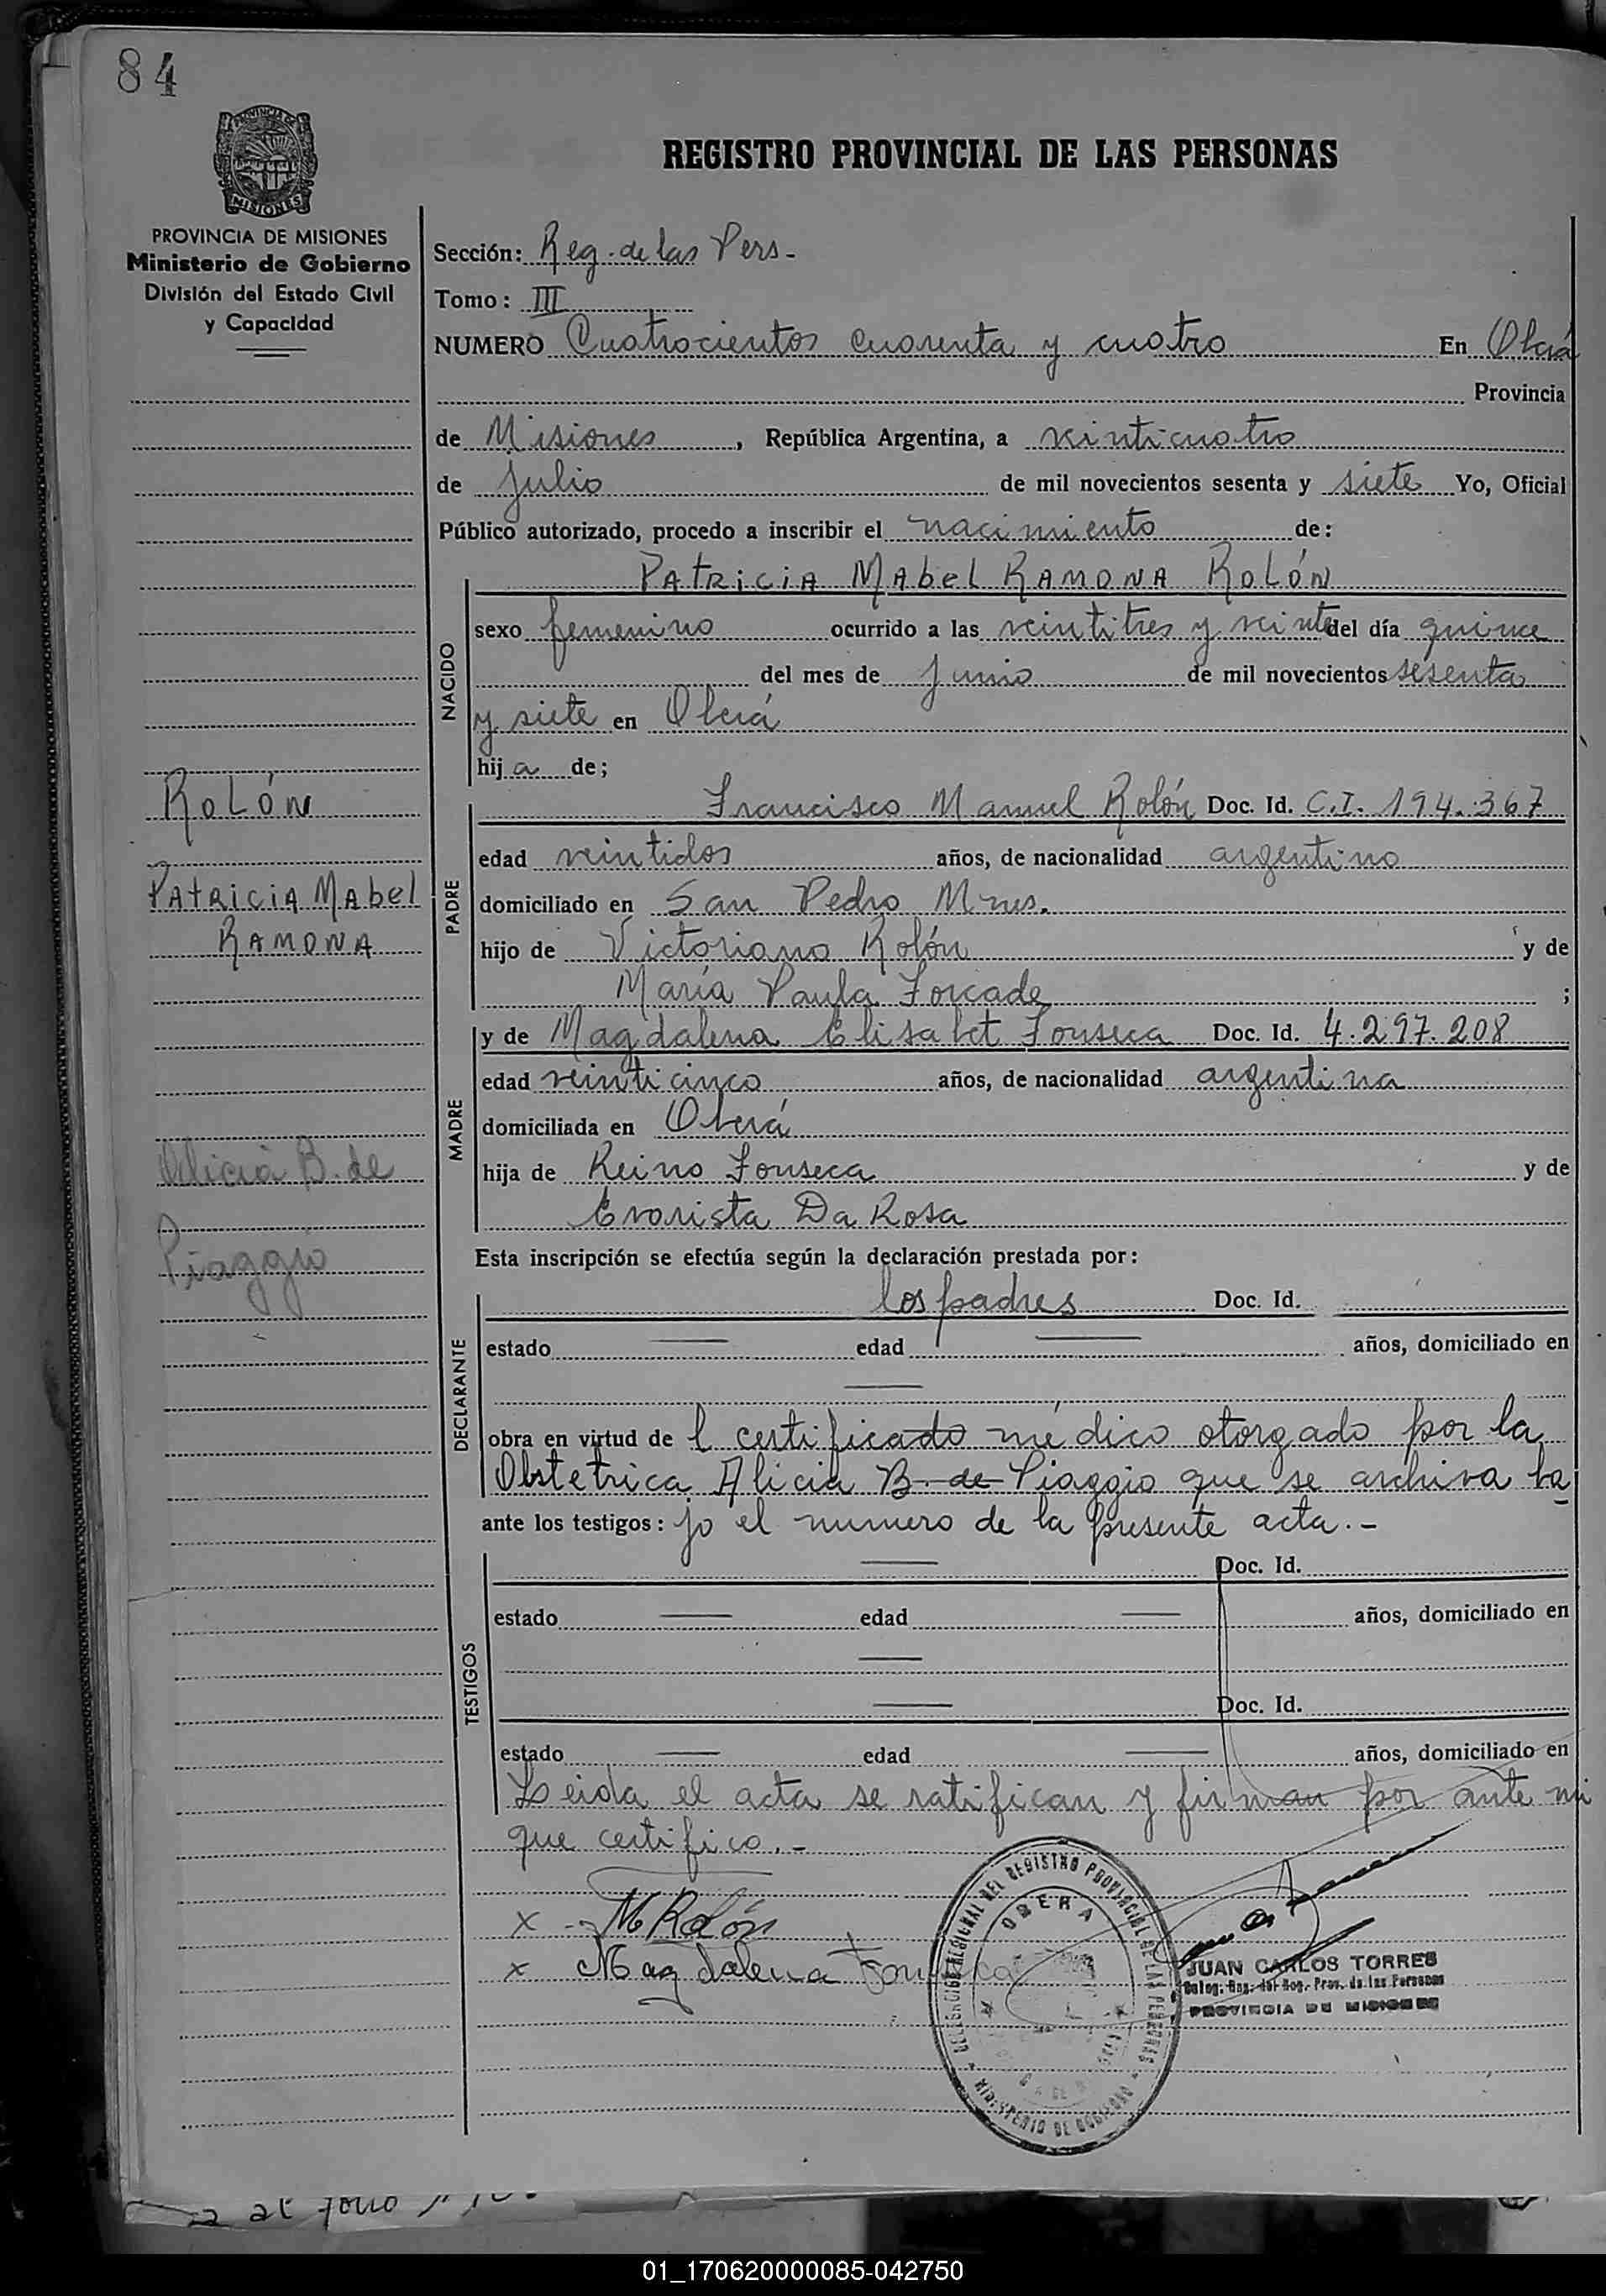 84
PROVINCIA DE MISIONES
PROVINCIA DE MISIONES
Ministerio de Gobierno
División del Estado Civil
y Capacidad
ROLÓN
PATRICIA MAbel
RAMONA
Alicia B. de
Piaggio
REGISTRO PROVINCIAL DE LAS PERSONAS
Sección: Reg. de las Pers-
Tomo: III
NUMERO Cuatrocientos cuarenta y cuatro En Oberá
Provincia
de Misiones, República Argentina, a veinticuatro
de julio de mil novecientos sesenta y siete Yo, Oficial
Público autorizado, procedo a inscribir el nacimiento de:
PAtRiciA MAbel RAMONA ROLÓN
NACIDO
sexo femenino ocurrido a las veintitres y veinte del día quince
del mes de junio de mil novecientos sesenta
y siete en Oberá
hija de;
PADRE
Francisco Manuel Rolón Doc. Id. C.I. 194.367
edad veintidos años, de nacionalidad argentino
domiciliado en San Pedro Mnes.
hijo de Victoriano Rolón y de
María Paula Forcade ;
MADRE
y de Magdalena Elisabet Fonseca Doc. Id. 4.297.208
edad veinticinco años, de nacionalidad argentina
domiciliada en Oberá
hija de Reino Fonseca y de
Evarista Da Rosa
Esta inscripción se efectúa según la declaración prestada por:
DECLARANTE
los padres Doc. Id.
estado — edad — años, domiciliado en
—
obra en virtud de l certificado médico otorgado por la
Obstetrica Alicia B. de Piaggio que se archiva ba
ante los testigos: jo el numero de la presente acta.-
TESTIGOS
— Doc. Id.
estado — edad — años, domiciliado en
—
— Doc. Id.
estado — edad — años, domiciliado en
Leida el acta se ratifican y firman por ante mi
que certifico.-
x - M Rolón
x Magdalena Fonseca
DELEGACION REGIONAL DEL REGISTRO PROVINCIAL DE LAS PERSONAS
OBERA
MINISTERIO DE GOBIERNO
JUAN CARLOS TORRES
Deleg. Reg. del Reg. Prov. de las Personas
PROVINCIA DE MISIONES
al folio
01_170620000085-042750